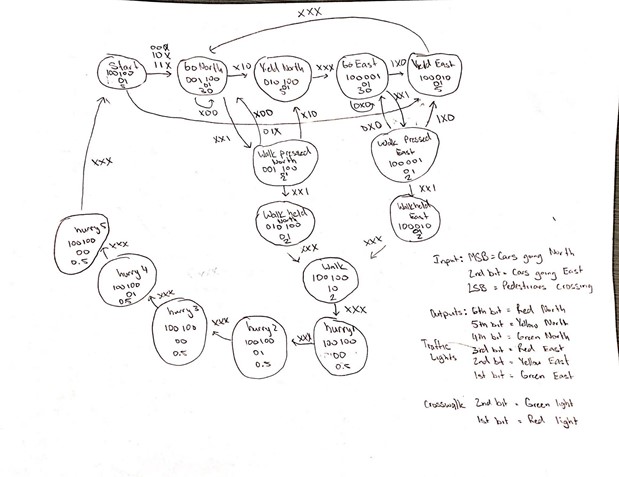 XXX
00X
10X
11X
Start
100100
01
5
Go North
001 100
01
30
X10
Yield North
010 100
01
5
XXX
Go East
100001
01
30
1X0
Yield East
100010
01
5
X00
X00
X10
0X0
0X0
XX1
1X0
01X
XX1
Walk Pressed
North
001 100
01
2
Walk Pressed
East
100 001
01
2
XX1
XX1
XXX
Walk held
North
010 100
01
2
Walk held
East
100010
01
2
XXX
XXX
hurry 5
100100
00
0.5
XXX
hurry 4
100100
01
0.5
XXX
Walk
100 100
10
2
XXX
hurry 3
100 100
00
0.5
XXX
hurry 2
100100
01
0.5
XXX
hurry 1
100100
00
0.5
Input: MSB = Cars going North
2nd bit = Cars going East
LSB = Pedestrians crossing
Outputs: 6th bit = Red North
5th bit = Yellow North
4th bit = Green North
Traffic 3rd bit = Red East
Lights 2nd bit = Yellow East
1st bit = Green East
Crosswalk 2nd bit = Green light
1st bit = Red light